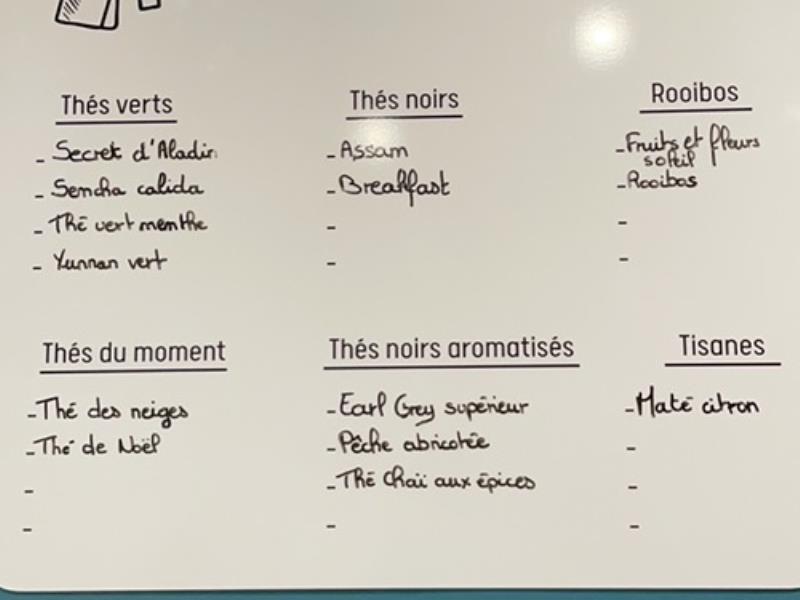 Thés verts
- Secret d'Aladin
- Sencha calida
- Thé vert menthe
- Yunnan vert
Thés noirs
- Assam
- Breakfast
-
-
Rooibos
- Fruits et fleurs
soleil
- Rooibos
-
-
Thés du moment
- Thé des neiges
- Thé de Noël
-
-
Thés noirs aromatisés
- Earl Grey supérieur
- Pêche abricotée
- Thé Chaï aux épices
-
Tisanes
- Maté citron
-
-
-